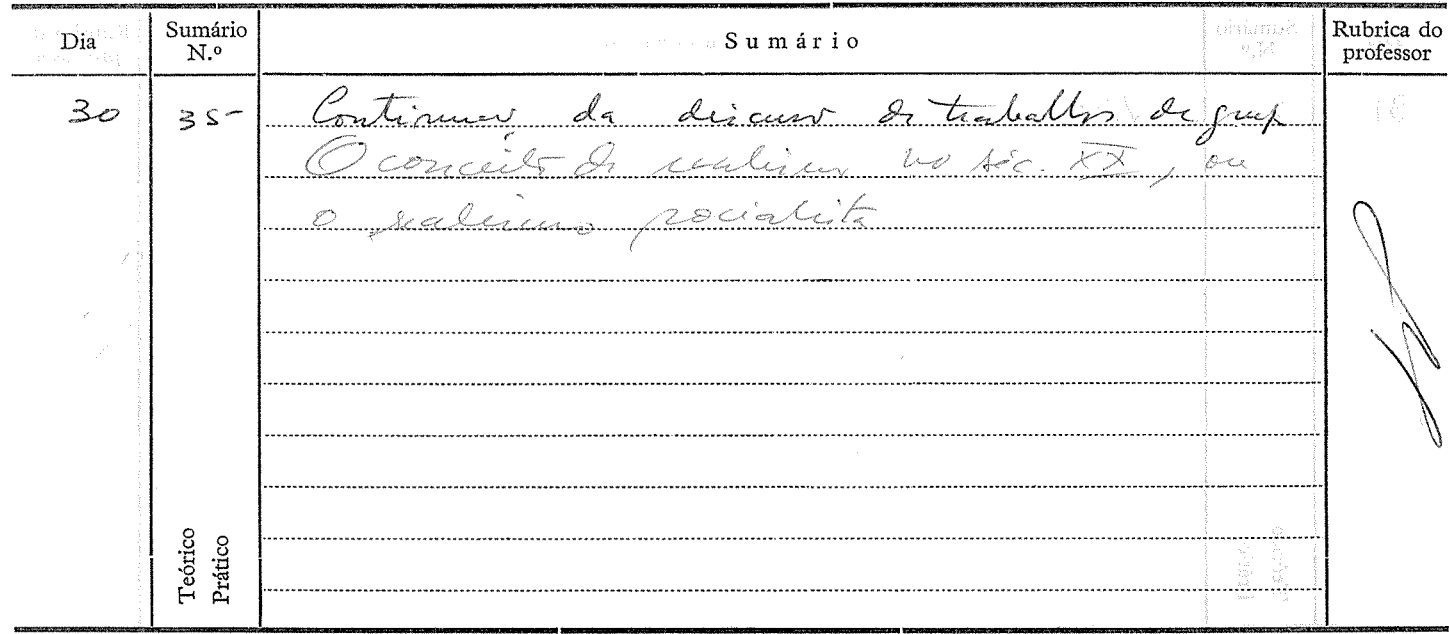 Dia Sumário N.º Sumário Rubrica do professor
30 35 Continuação da discussão de trabalhos de grupo
O conceito de realismo no séc. XX, ou
o realismo socialista
Teórico
Prático